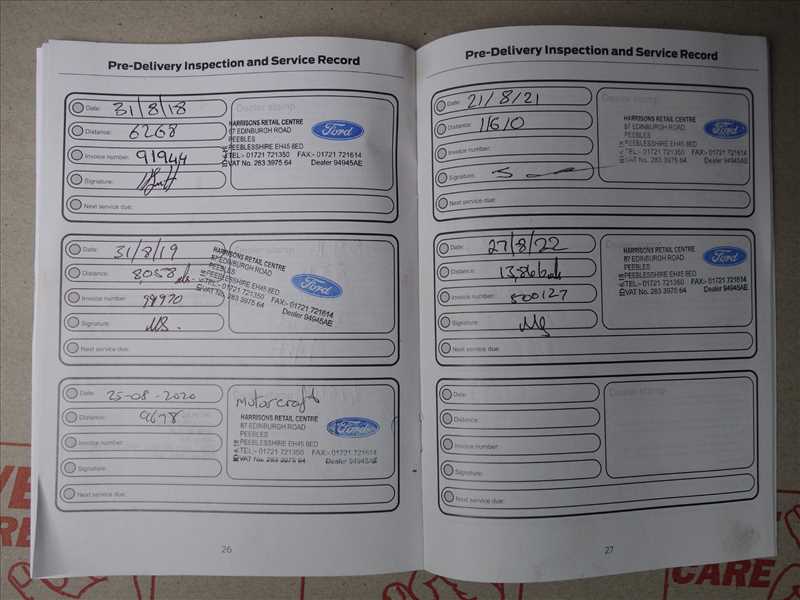 Pre-Delivery Inspection and Service Record
Date: 31/8/18
Distance: 6268
Invoice number: 91944
Signature:
Next service due:
Dealer stamp
HARRISONS RETAIL CENTRE
87 EDINBURGH ROAD
PEEBLES
PEEBLESSHIRE EH45 8ED
TEL:- 01721 721350 FAX:- 01721 721614
VAT No. 263 3975 64 Dealer 94945AE
Ford
Date: 31/8/19
Distance: 8,058 mls.
Invoice number: 99970
Signature: MS.
Next service due:
HARRISONS RETAIL CENTRE
87 EDINBURGH ROAD
PEEBLES
PEEBLESSHIRE EH45 8ED
TEL:- 01721 721350 FAX:- 01721 721614
VAT No. 263 3975 64 Dealer 94945AE
Ford
Date: 25-08-2020
Distance: 9678
Invoice number:
Signature:
Next service due:
Motorcraft
HARRISONS RETAIL CENTRE
87 EDINBURGH ROAD
PEEBLES
PEEBLESSHIRE EH45 8ED
TEL:- 01721 721350 FAX:- 01721 721614
VAT No. 263 3975 64 Dealer 94945AE
Ford
26
Pre-Delivery Inspection and Service Record
Date: 21/8/21
Distance: 11610
Invoice number:
Signature:
Next service due:
Dealer stamp
HARRISONS RETAIL CENTRE
87 EDINBURGH ROAD
PEEBLES
PEEBLESSHIRE EH45 8ED
TEL:- 01721 721350 FAX:- 01721 721614
VAT No. 263 3975 64 Dealer 94945AE
Ford
Date: 27/8/22
Distance: 13,866 mls
Invoice number: 500127
Signature: MS
Next service due:
HARRISONS RETAIL CENTRE
87 EDINBURGH ROAD
PEEBLES
PEEBLESSHIRE EH45 8ED
TEL:- 01721 721350 FAX:- 01721 721614
VAT No. 263 3975 64 Dealer 94945AE
Ford
Date:
Distance:
Invoice number:
Signature:
Next service due:
Dealer stamp
27
CARE